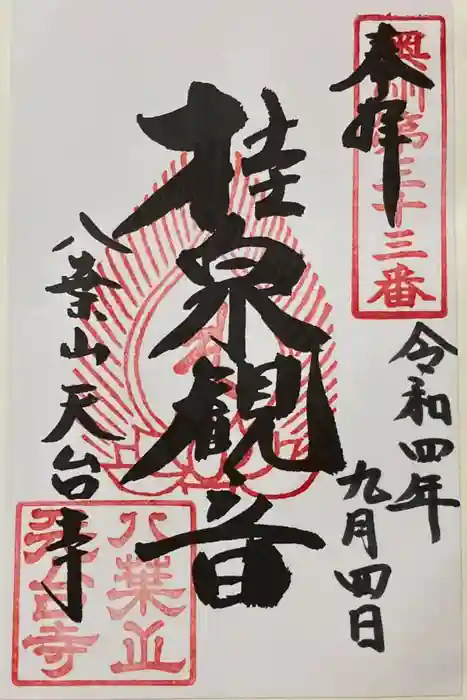 奉拝
奥州第三十三番
令和四年
九月四日
桂泉観音
八葉山天台寺
八葉山
天台寺